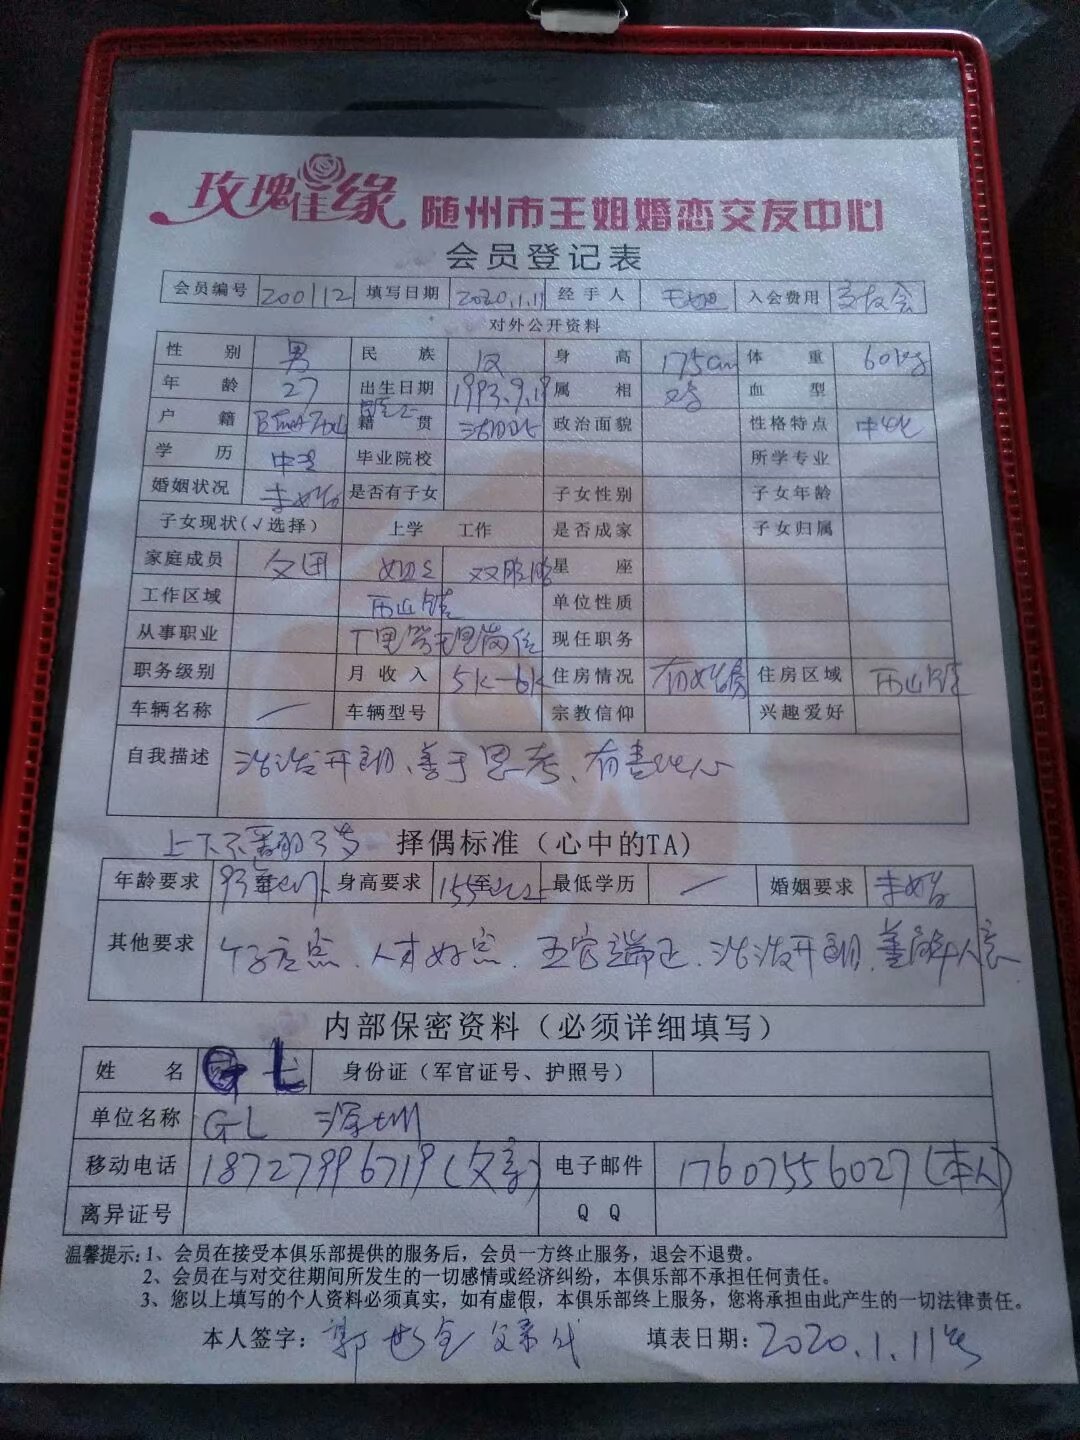 玫瑰佳缘 随州市王姐婚恋交友中心
会员登记表
会员编号 200112 填写日期 2020.1.11 经手人 王姐 入会费用 交友会
对外公开资料
性别 男 民族 汉 身高 175cm 体重 60kg
年龄 27 出生日期 1993.9.19 属相 鸡 血型
户籍 籍贯 湖北 政治面貌 性格特点
学历 中专 毕业院校 所学专业
婚姻状况 未婚 是否有子女 子女性别 子女年龄
子女现状(√选择) 上学 工作 是否成家 子女归属
家庭成员 星座
工作区域 单位性质
从事职业 现任职务
职务级别 月收入 5K-6K 住房情况 有婚房 住房区域
车辆名称 / 车辆型号 宗教信仰 兴趣爱好
自我描述 活泼开朗、善于思考、有责任心
上下不要超3岁 择偶标准(心中的TA)
年龄要求 身高要求 最低学历 / 婚姻要求 未婚
其他要求 人才好点、五官端正、活泼开朗、善解人意
内部保密资料(必须详细填写)
姓名 GL 身份证(军官证号、护照号)
单位名称 GL 深圳
移动电话 18727996719(父亲) 电子邮件 17607556027(本人)
离异证号 QQ
温馨提示:1、会员在接受本俱乐部提供的服务后,会员一方终止服务,退会不退费。
2、会员在与对交往期间所发生的一切感情或经济纠纷,本俱乐部不承担任何责任。
3、您以上填写的个人资料必须真实,如有虚假,本俱乐部终上服务,您将承担由此产生的一切法律责任。
本人签字: 父亲代 填表日期: 2020.1.11号